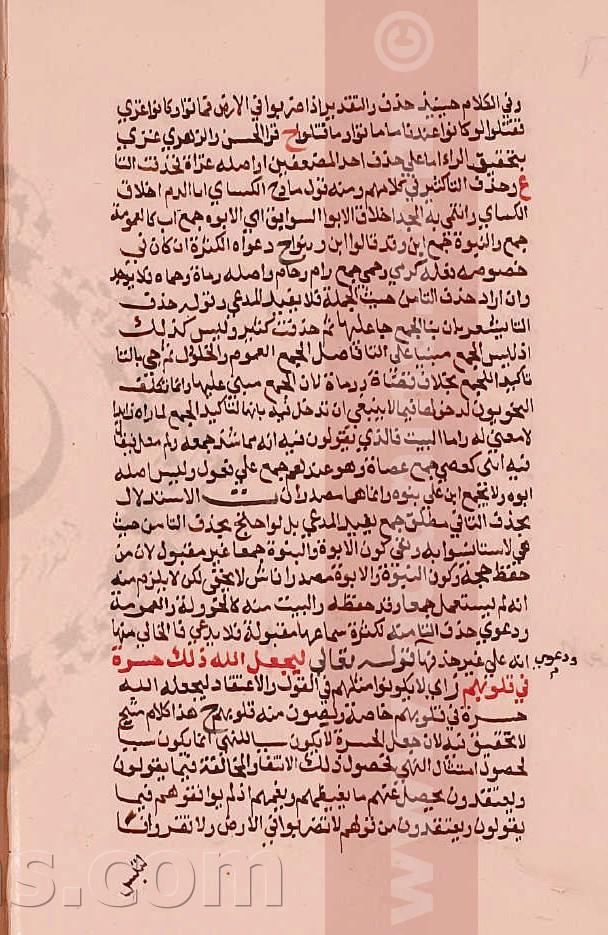 وفي الكلام حينئذ حذف والتقدير اذا ضربوا في الارض فماتوا او كانوا غزي
فقتلوا لو كانوا عندنا ما ماتوا وما قتلوا ح قرا الحسن والزهري غزي
بتخفيف الراء اما على حذف احد المضعفين او اصله غزاة فحذفت التا
ع وحذف التا كثير في كلامهم ومنه قوله مادح الكسائي ابا الدم اخلاق
الكسائي وانتمى به المجد اخلاق الابو السوابق اي الابوة جمع اب كالعمومة
جمع عم والبنوة جمع ابن وقد قالوا ابن وبنو ح دعواه الكثرة ان كان في
خصوصه فقلة كرمي ورمى جمع رام وحام واصله رماة وحماة فلا يوجد
وان اراد حذف التا من حيث الجملة فلا يفيد المدعي وقوله حذف
التا يشعر بان بنا الجمع جا عليها ثم حذفت كثير وليس كذلك
اذ ليس الجمع مبنيا على التا فاصل الجمع العموم والخلول ثم جي بالتا
تاكيد الجمع بخلاف قضاة ورماة لان الجمع مبني عليها وانما تكلف
النحويون لدخولها فيما لا ينبغي ان تدخل فيه بانها لتاكيد الجمع لما راه زايدا
لا معنى له واما البيت فالذي يقولون فيه انه مما شذ جمعه ولم يعل فيقال
فيه ابي كعصي جمع عصاة وهو عندهم جمع على فعول وليس اصله
ابوه ولا يجمع ابن على بنوه وانما هما مصدران الاستدلال
بحذف التا في مطلق جمع يفيد المدعي بل لو احتج بحذف التا من حيث
هي لاستانسوا به ونفي كون الابوة والبنوة جمعا غير مقبول لان من
حفظ حجة وكون البنوة والابوة مصدرا ناش لا يخفى لكن لا يلزم منه
انه لم يستعمل جمعا وقد حفظه والبيت منه كالخولة والعمومة
ودعوي حذف التا منه لكثرة سماعها مقبولة فلا يدعي فالخالي منها
انه على غير حذفها قوله تعالى ليجعل الله ذلك حسرة
ودعوي
في قلوبهم ز اي لا يكونوا مثلهم في القول والاعتقاد ليجعله الله
حسرة في قلوبهم خاصة ويصون منه قلوبهم ح هذا كلام شيخ
لا تحقيق فيه لان جعل الحسرة لا يكون سببا للنهي انما يكون سببا
لحصول امتثال النهي لحصول ذلك الانتفا والمخالفة فيما يقولون
ويعتقدون يحصل عنهم ما يغيظهم ويغمهم اذ لم يوافقوهم فيما
يقولون ويعتقدون من قولهم لا تضربوا في الارض ولا تغزوا
s.com
www.
©